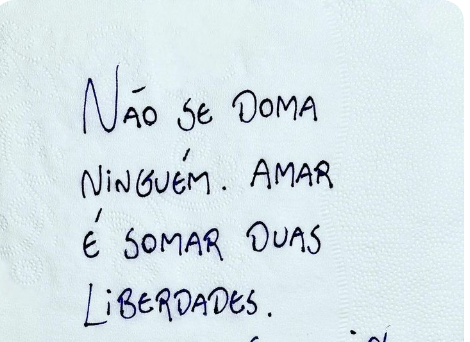 NÃO SE DOMA
NINGUÉM. AMAR
É SOMAR DUAS
LIBERDADES.